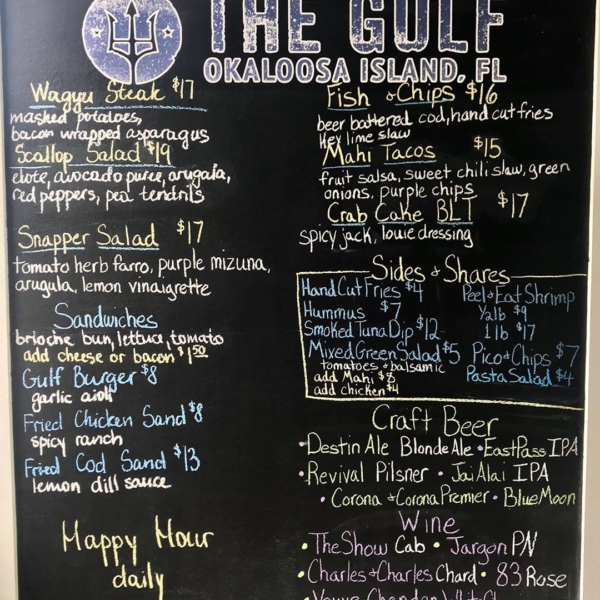 THE GULF
OKALOOSA ISLAND, FL
Wagyu Steak $17
mashed potatoes,
bacon wrapped asparagus
Scallop Salad $19
elote, avocado puree, arugala,
red peppers, pea tendrils
Snapper Salad $17
tomato herb farro, purple mizuna,
arugula, lemon vinaigrette
Sandwiches
brioche bun, lettuce, tomato
add cheese or bacon $1.50
Gulf Burger $8
garlic aioli
Fried Chicken Sand $8
spicy ranch
Fried Cod Sand $13
lemon dill sauce
Happy Hour
daily
Fish & Chips $16
beer battered cod, hand cut fries
Key lime slaw
Mahi Tacos $15
fruit salsa, sweet chili slaw, green
onions, purple chips
Crab Cake BLT $17
spicy jack, louie dressing
Sides & Shares
Hand Cut Fries $4
Hummus $7
Smoked Tuna Dip $12
Mixed Green Salad $5
tomatoes & balsamic
add Mahi $8
add chicken $4
Peel & Eat Shrimp
1/2 lb $9
1 lb $17
Pico & Chips $7
Pasta Salad $4
Craft Beer
• Destin Ale Blonde Ale • East Pass IPA
• Revival Pilsner • Jai Alai IPA
• Corona & Corona Premier • Blue Moon
Wine
• The Show Cab • Jargon PN
• Charles & Charles Chard • 83 Rose